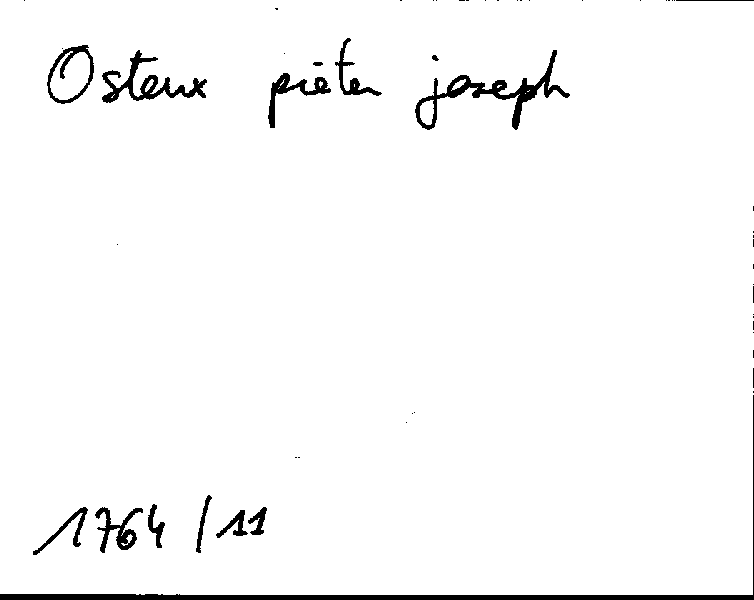 Osteux pieter joseph
1764/11